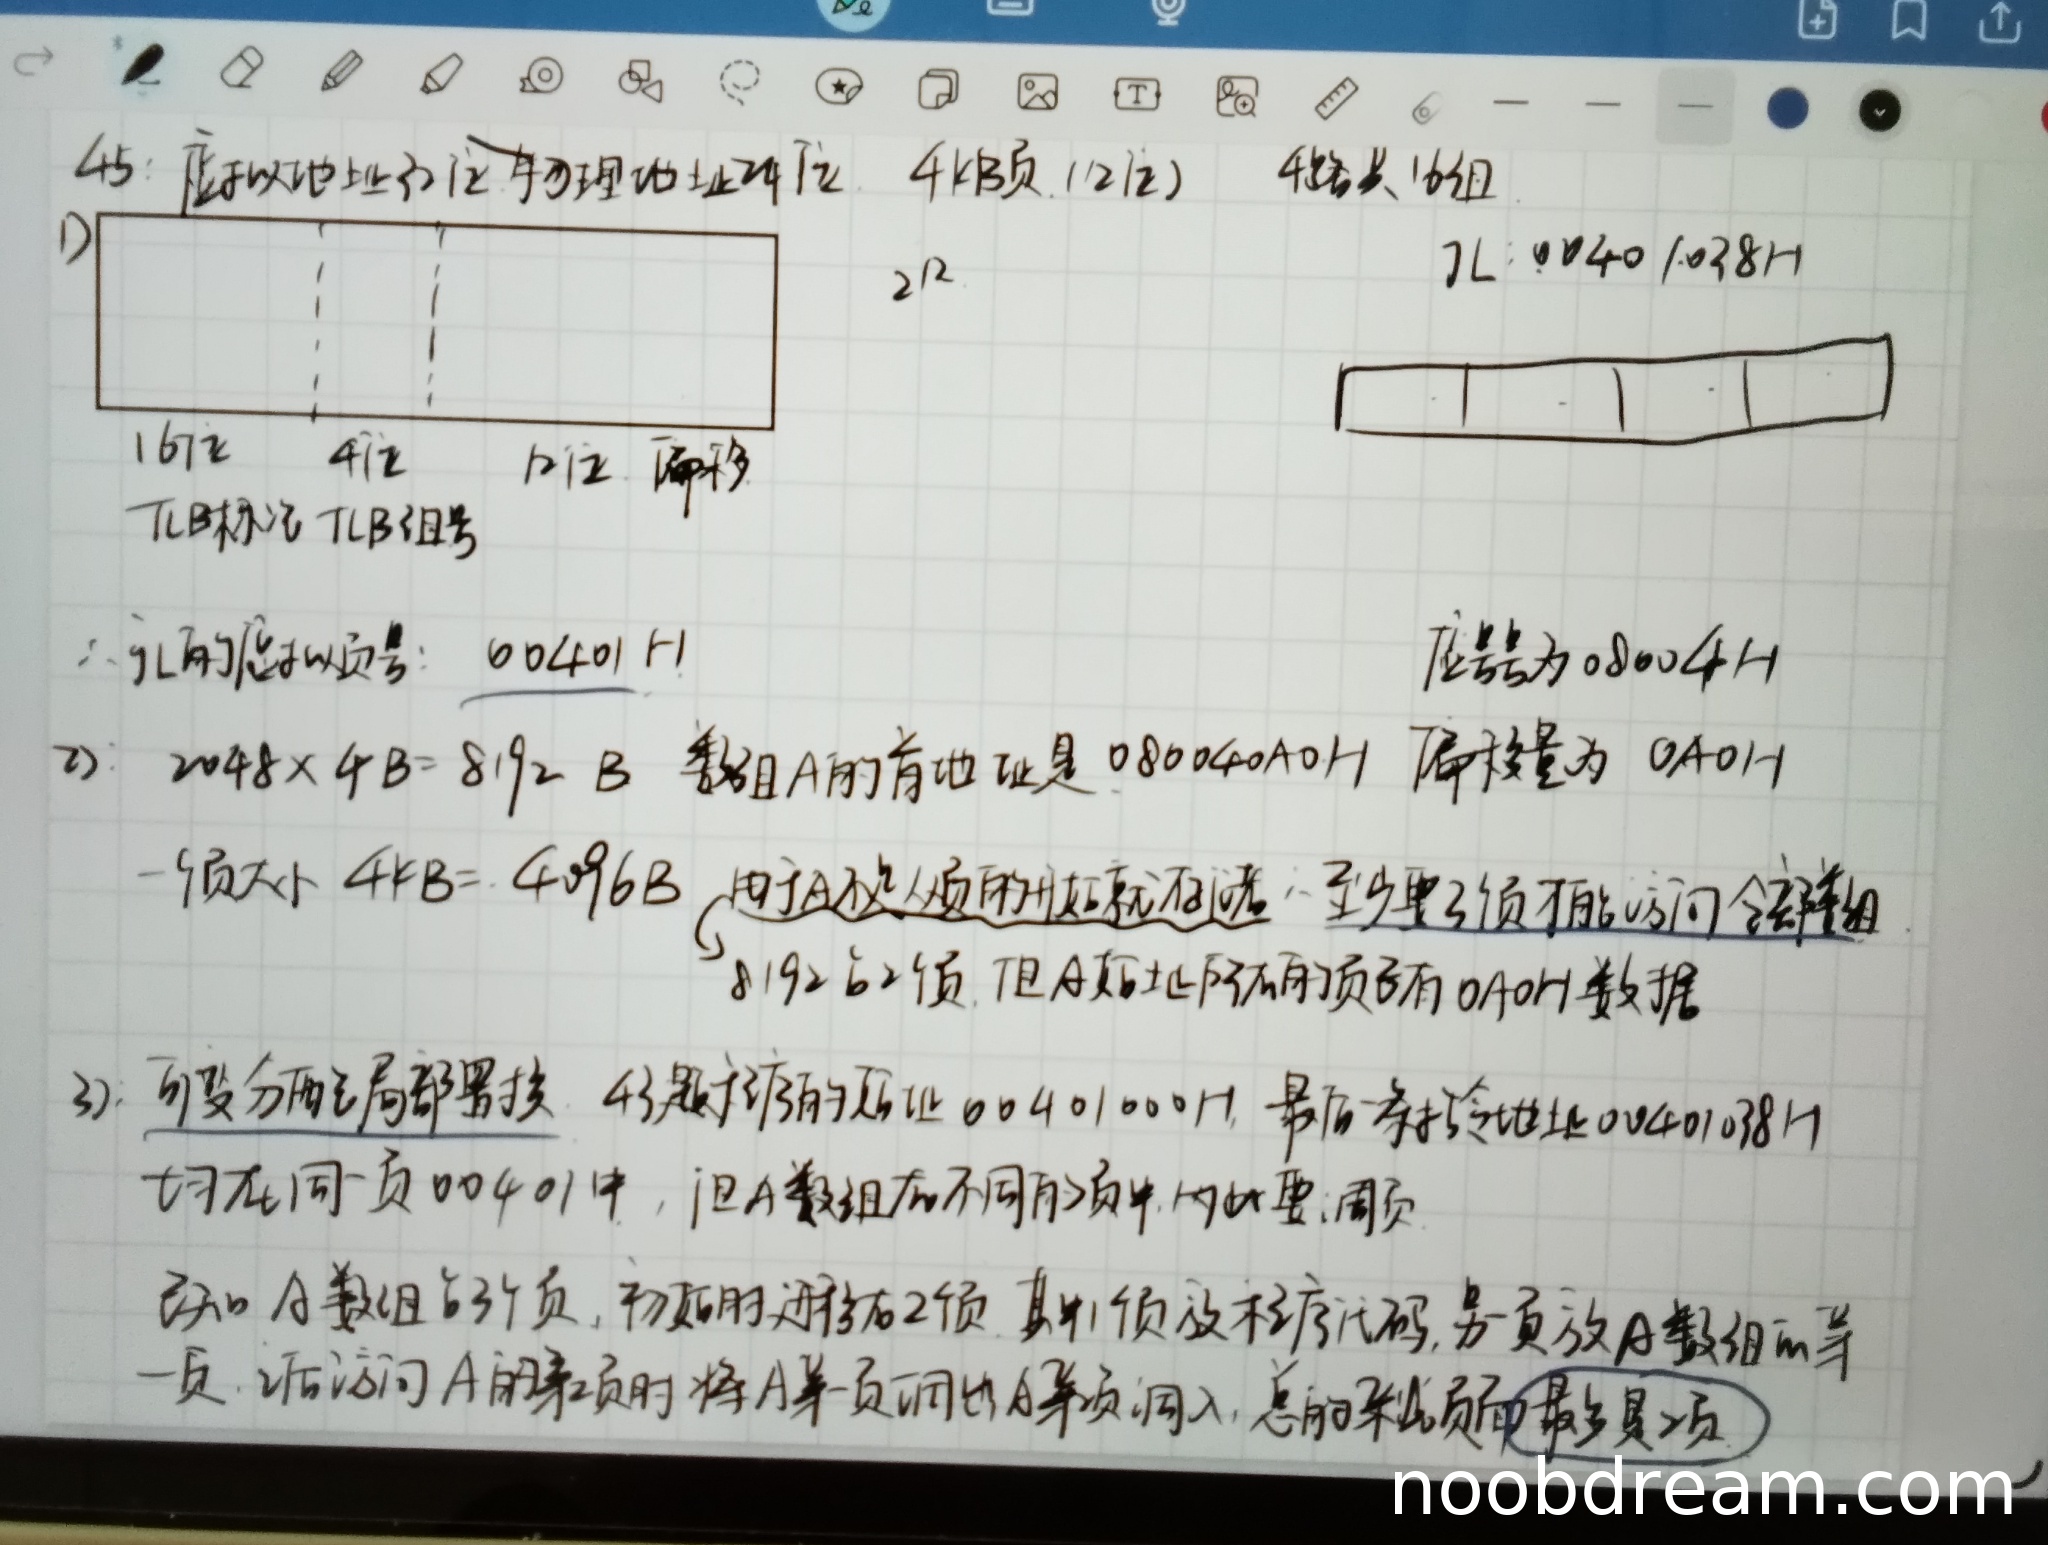 45: 虚拟地址32位 物理地址24位 4KB页(12位) 4路 16组
1)
2^12
jL: 00401038H
16位 4位 12位 偏移
TLB标记 TLB组号
∴ jL的虚拟页号: 00401H
虚 号为08004H
2): 2048×4B=8192B 数组A的首地址是080040A0H 偏移量为 0A0H
一个页大小 4KB=4096B 由于A不是从页的开始就 ∴至少要3个页才能访问全部数组
8192占2个页,但A始址所在的页已有0A0H数据
3): 可变分配局部置换 43题程序的始址00401000H,最后一条指令地址00401038H
均在同一页00401中,但A数组在不同的页中,因此要调页
已知A数组占3个页,初始时进程有2个页,其中1个页放程序代码,另一页放A数组的第
一页,之后访问A的第2页时将A第一页调出A第2页调入,总的 页面最多是2页
noobdream.com